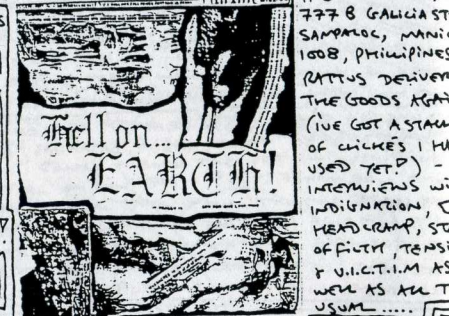 Hell on...
EARTH!
777 B GALICIA ST
SAMPALOC, MANI
1008, PHILIPINES
RATTUS DELIVER
THE GOODS AGAI
(IVE GOT A STACK
OF CLICHES I HA
USED YET!) -
INTERVIEWS WI
INDIGNATION,
HEADCRAMP, ST
OF FILTH, TENSI
& V.I.C.T.I.M AS
WELL AS ALL T
USUAL.....